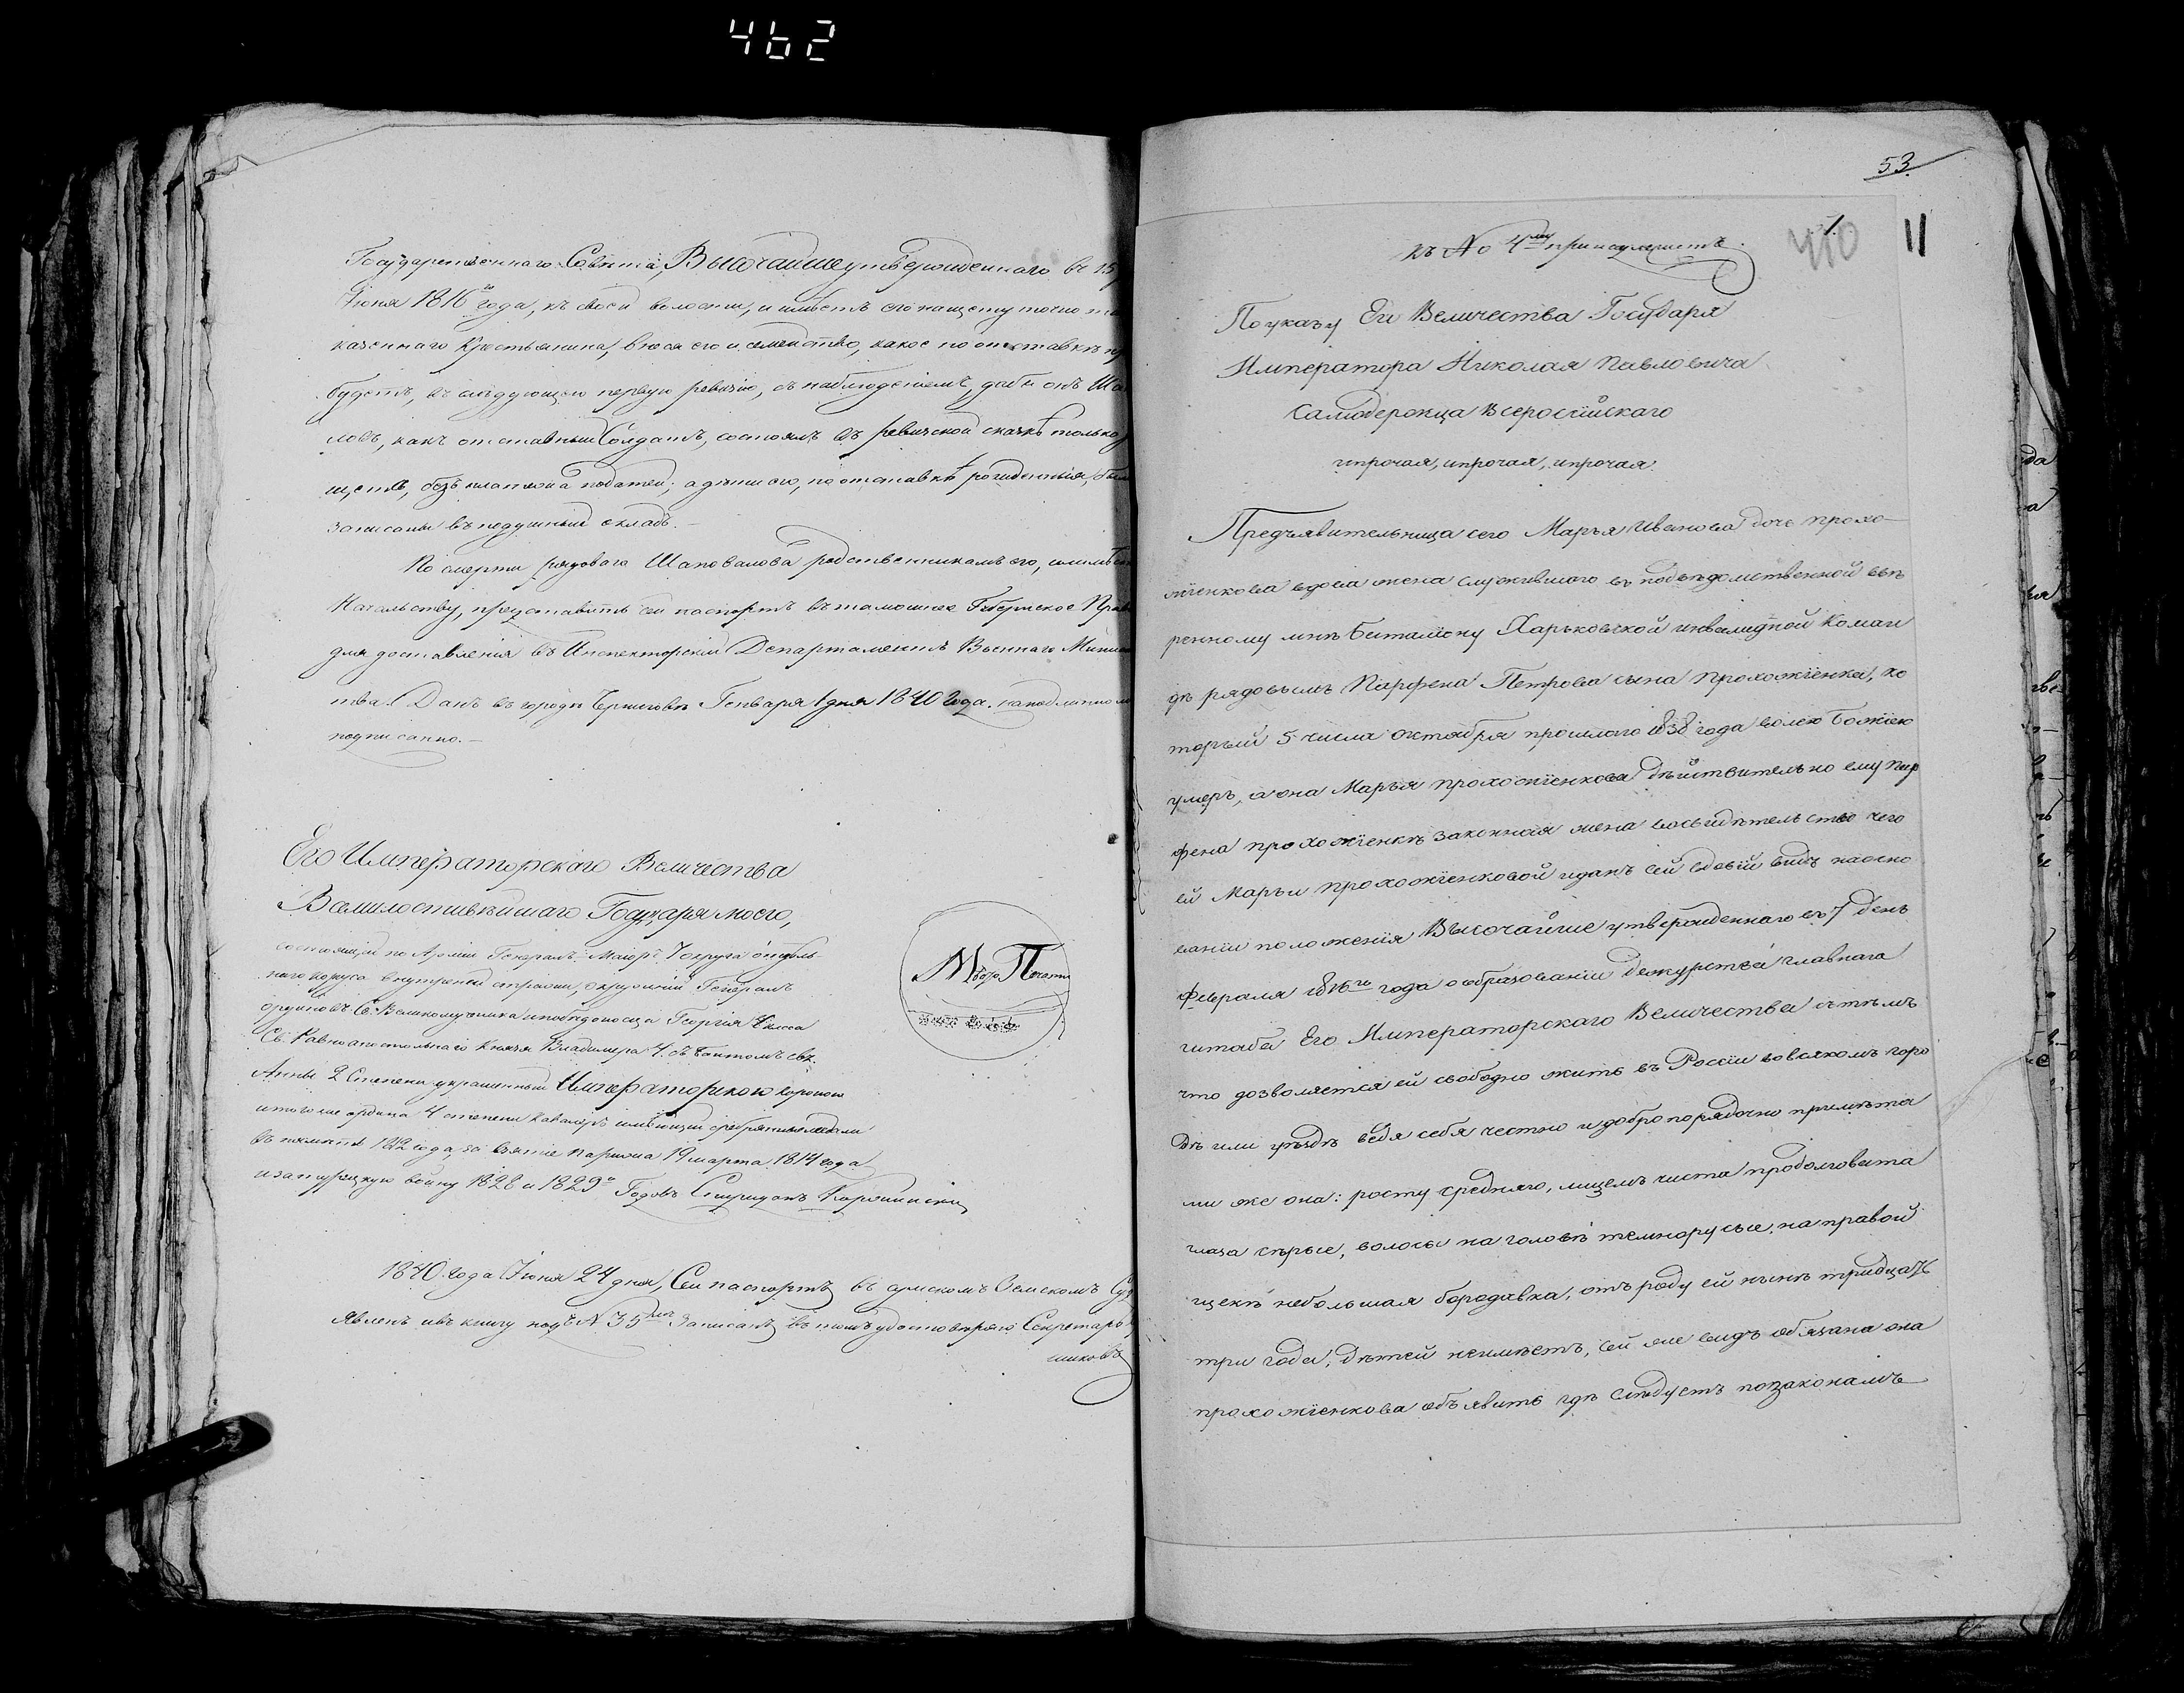 462
Государственнаго Совѣта, Высочайше утвержденнаго въ 15
Іюня 1816 года, къ своей волости, и имѣетъ его нащету точно
казеннаго Крестьянина, внеся его и семейство, какое по отставкѣ
будетъ, въ слѣдующую первую ревизію, съ наблюденіемъ, дабы онъ
ловъ, какъ отставный Солдатъ, состоялъ въ ревизской сказкѣ только
ществ, безъ платежа податей; а дѣти его, по отставкѣ рожденныя,
записаны въ подушный окладъ.—
По смерти рядоваго Шаповалова родственникамъ его, или мѣст
Начальству, представить сей паспортъ въ тамошнее Губернское Прав
для доставленія въ Инспекторскій Департаментъ Военнаго Минис
тва. Данъ въ городѣ Черниговѣ Генваря 1 дня 1840 года. на подлинном
подписанно.—
Его Императорскаго Величества
Всемилостивѣйшаго Государя моего,
состоящій по Арміи Генералъ Маіоръ 7 округа отдѣль
наго корпуса внутренней стражи, окружный Генералъ
орденовъ Св: Великомученика и побѣдоносца Георгія 4 класса
Св: Равноапостольнаго Князя Владимера 4. съ бантомъ свя.
Анны 2 Степени украшенный Императорскою короною
и того же ордена 4 степени Кавалеръ имѣющій серебряные медали
въ память 1812 года, за взятіе Парижа 19 марта 1814 года
и за турецкую войну 1828 и 1829го Годовъ Спиридонъ
М
Печати
1840 года Іюня 24 дня, Сей паспортъ въ сумскомъ Земскомъ Су
Явленъ и въ книгу подъ N 35 Записанъ въ томъ удостовѣряю Секретарь
шиковъ
53
1.
410
11
къ No 4му
По указу Его Величества Государя
Императора Николая Павловича
Самодержца Всеросійскаго
и прочая, и прочая, и прочая.
Предъявительница сего Марья Иванова дочь прохо—
жіенкова вдова жена служившаго въ подвѣдомственной ввѣ
ренному мнѣ баталіону Харьковской инвалидной Коман
дѣ рядовымъ Парфена Петрова сына Прохожіенка, ко
торый 5 числа октября прошлаго 1838 года волею Божіею
умеръ, а она Марья прохожіенкова дѣйствительно ему Пар
фена прохожіенкѣ законная жена во свидѣтельство чего
ей Марьи прохожіенковой и данъ сей вдовій видъ на осно
ваніи положенія Высочайше утвержденнаго въ 7 день
Февраля 1816го года о образованіи дежурства главнаго
штаба Его Императорскаго Величества с тѣмъ
что дозволяется ей свободно жить въ Россіи во всякомъ горо
дѣ или уѣздѣ ведя себя честно и добропорядочно примѣта
ми же она: росту средняго, лицемъ чиста продолговата
глаза сѣрые, волосы на головѣ темнорусые, на правой
щекѣ небольшая бородавка, отъ роду ей нынѣ тридцать
три года, дѣтей неимѣетъ, сей же видъ обязана она
прохожіенкова объявить гдѣ слѣдуетъ по законамъ